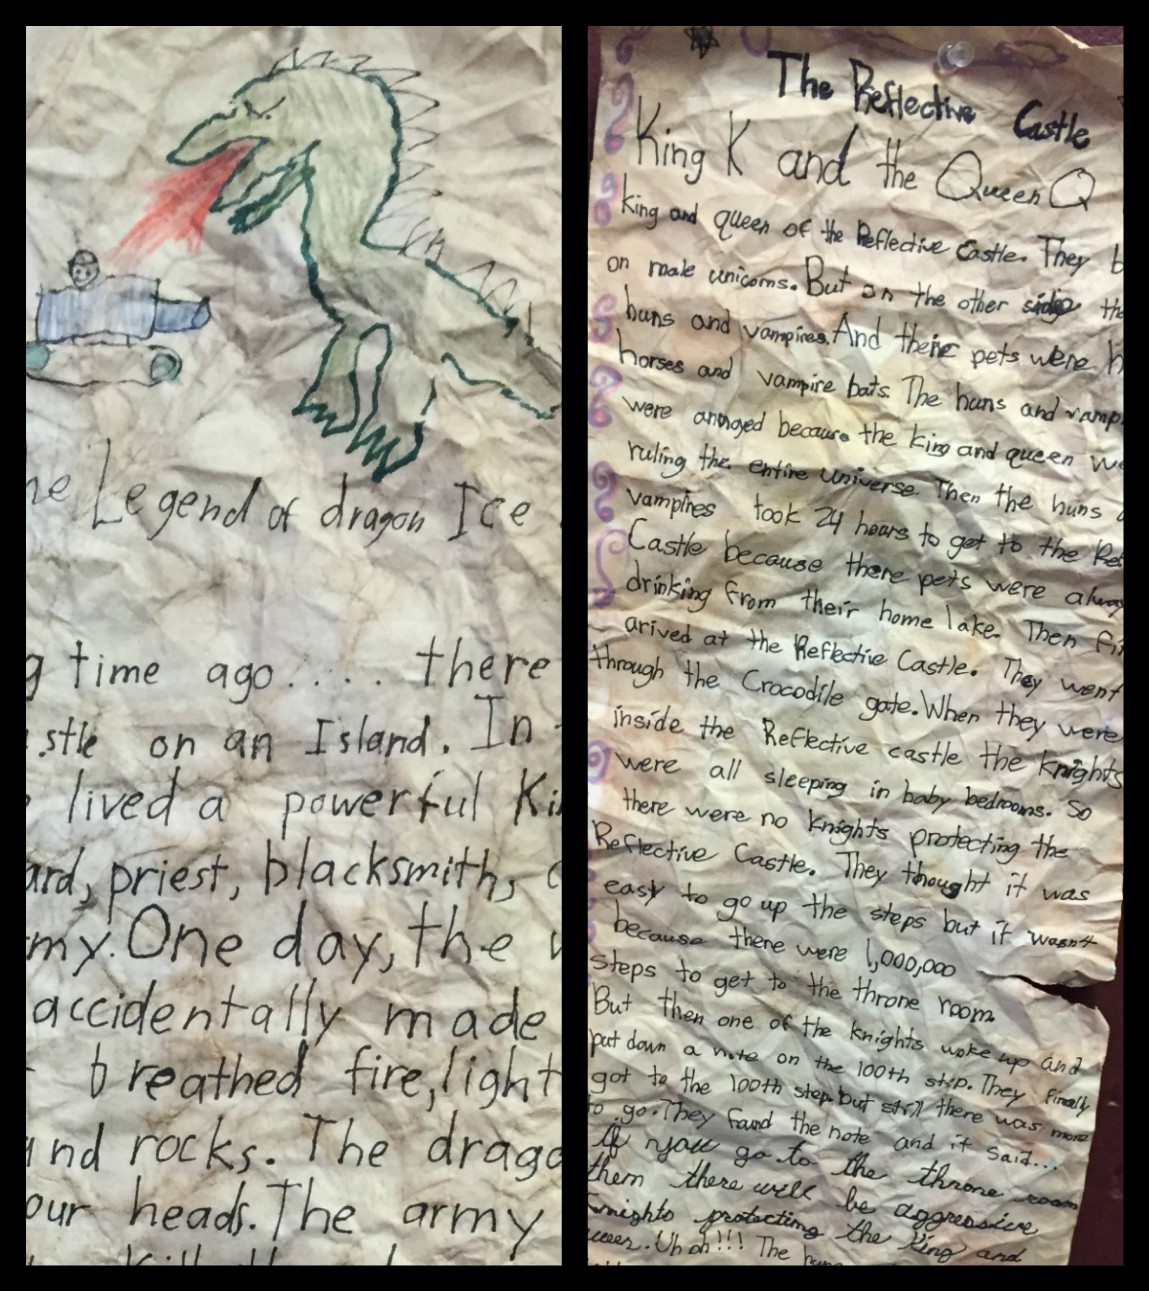 he Legend of dragon Ice
g time ago..... there
stle on an Island. In
lived a powerful Ki
ard, priest, blacksmith,
my. One day, the w
accidentally made
breathed fire, light
nd rocks. The drago
our heads. The army
The Reflective Castle
King K and the Queen Q
king and queen of the Reflective Castle. They b
on male unicorns. But on the other side the
huns and vampires. And there pets were h
horses and vampire bats. The huns and vamp
were annoyed because the king and queen we
ruling the entire universe. Then the huns a
vampires took 24 hours to get to the Ref
Castle because there pets were alway
drinking from their home lake. Then fi
arived at the Reflective Castle. They went
through the Crocodile gate. When they were
inside the Reflective castle the knights
were all sleeping in baby bedrooms. So
there were no knights protecting the
Reflective Castle. They thought it was
easy to go up the steps but it wasn't
because there were 1,000,000
steps to get to the throne room.
But then one of the knights woke up and
put down a note on the 100th step. They finally
got to the 100th step but still there was more
to go. They found the note and it said...
If you go to the throne room
them there will be aggressive
knights protecting the King and
ueen. Uh oh!!! The huns